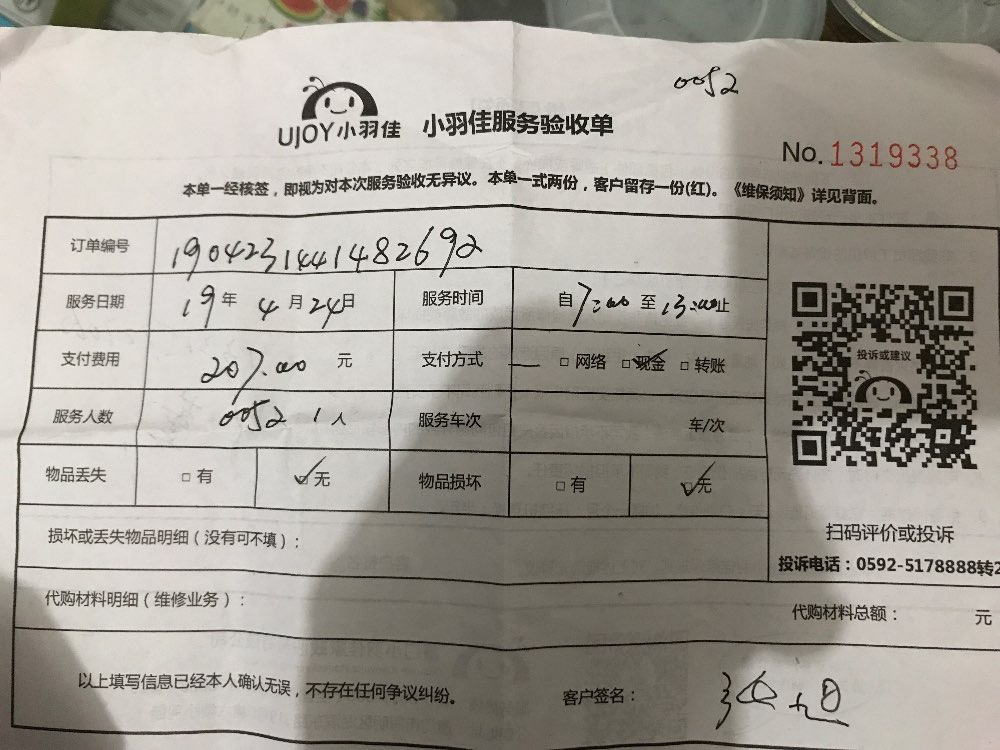 0052
UJOY小羽佳 小羽佳服务验收单
No.1319338
本单一经核签，即视为对本次服务验收无异议。本单一式两份，客户留存一份(红)。《维保须知》详见背面。
订单编号 1904231441482692
服务日期 19年4月24日 服务时间 自7:00至13:00止
支付费用 207.00元 支付方式 □网络 ☑现金 □转账
服务人数 0052 1人 服务车次 车/次
物品丢失 □有 ☑无 物品损坏 □有 ☑无
投诉或建议
扫码评价或投诉
投诉电话：0592-5178888转2
损坏或丢失物品明细（没有可不填）：
代购材料明细（维修业务）： 代购材料总额： 元
以上填写信息已经本人确认无误，不存在任何争议纠纷。 客户签名：